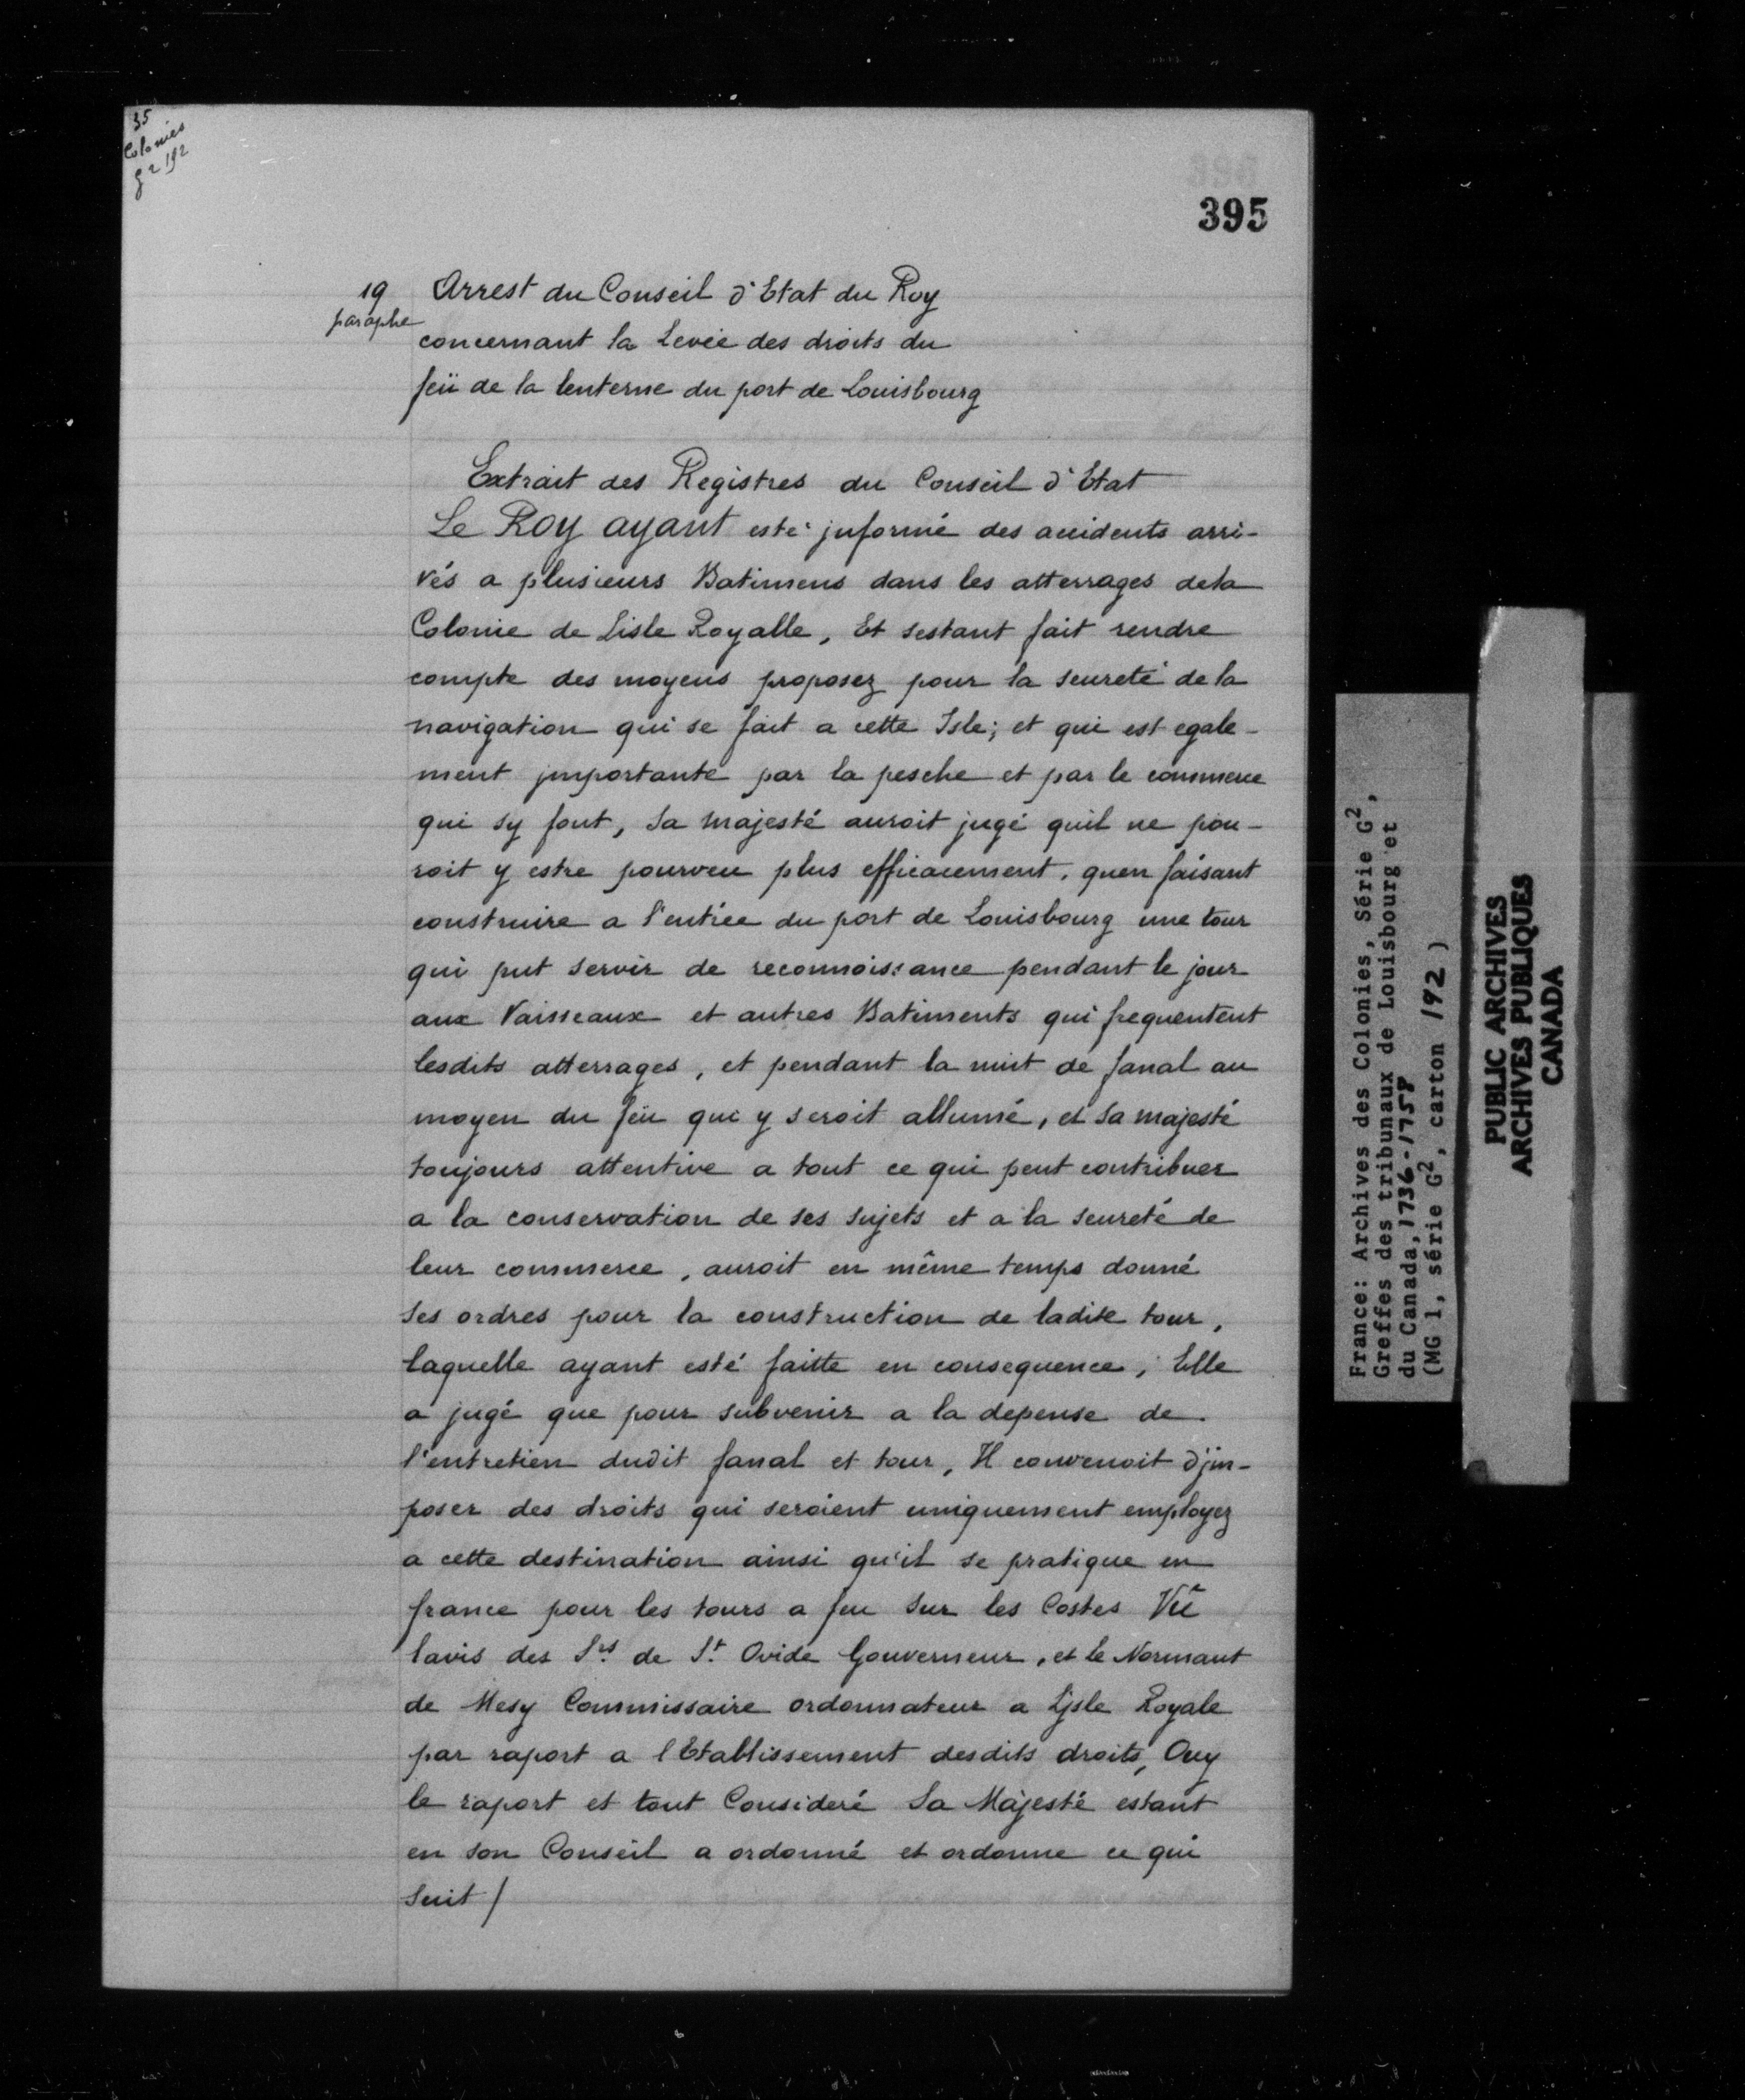 35
Colonies
g2 192
395
19
paraphe
Arrest du Conseil d'Etat du Roy
concernant la Levée des droits du
feü de la lenterne du port de Louisbourg
Extrait des Registres du Conseil d'Etat
Le Roy ayant esté jnformé des accidents arri-
vés a plusieurs Batimens dans les atterrages dela
Colonie de Lisle Royalle, Et sestant fait rendre
compte des moyens proposez pour la seureté de la
navigation qui se fait a cette Isle; et qui est egale-
ment jmportante par la pesche et par le commerce
qui sy font, Sa majesté auroit jugé quil ne pou-
roit y estre pourveu plus efficacement, quen faisant
construire a l'entrée du port de Louisbourg une tour
qui put servir de reconnoissance pendant le jour
aux Vaisseaux et autres Batiments qui frequentent
lesdits atterrages, et pendant la nuit de fanal au
moyen du feü qui y seroit allumé, et Sa majesté
toujours attentive a tout ce qui peut contribuer
a la conservation de ses sujets et a la seureté de
leur commerce, auroit en même temps donné
ses ordres pour la construction de ladite tour,
laquelle ayant esté faitte en consequence, Elle
a jugé que pour subvenir a la depense de
l'entretien dudit fanal et tour, Il convenoit d'jm-
poser des droits qui seroient uniquement employez
a cette destination ainsi qu'il se pratique en
france pour les tours a feu sur les Costes Vû
lavis des Srs de St Ovide Gouverneur, et le Normant
de Mesy Commissaire ordonnateur a Ljsle Royale
par raport a l Etablissement desdits droits, Ouy
le raport et tout Consideré Sa Majesté estant
en son Conseil a ordonné et ordonne ce qui
suit /
France: Archives des Colonies, Série G2,
Greffes des tribunaux de Louisbourg et
du Canada, 1736-1758
(MG 1, série G2, carton 192)
PUBLIC ARCHIVES
ARCHIVES PUBLIQUES
CANADA